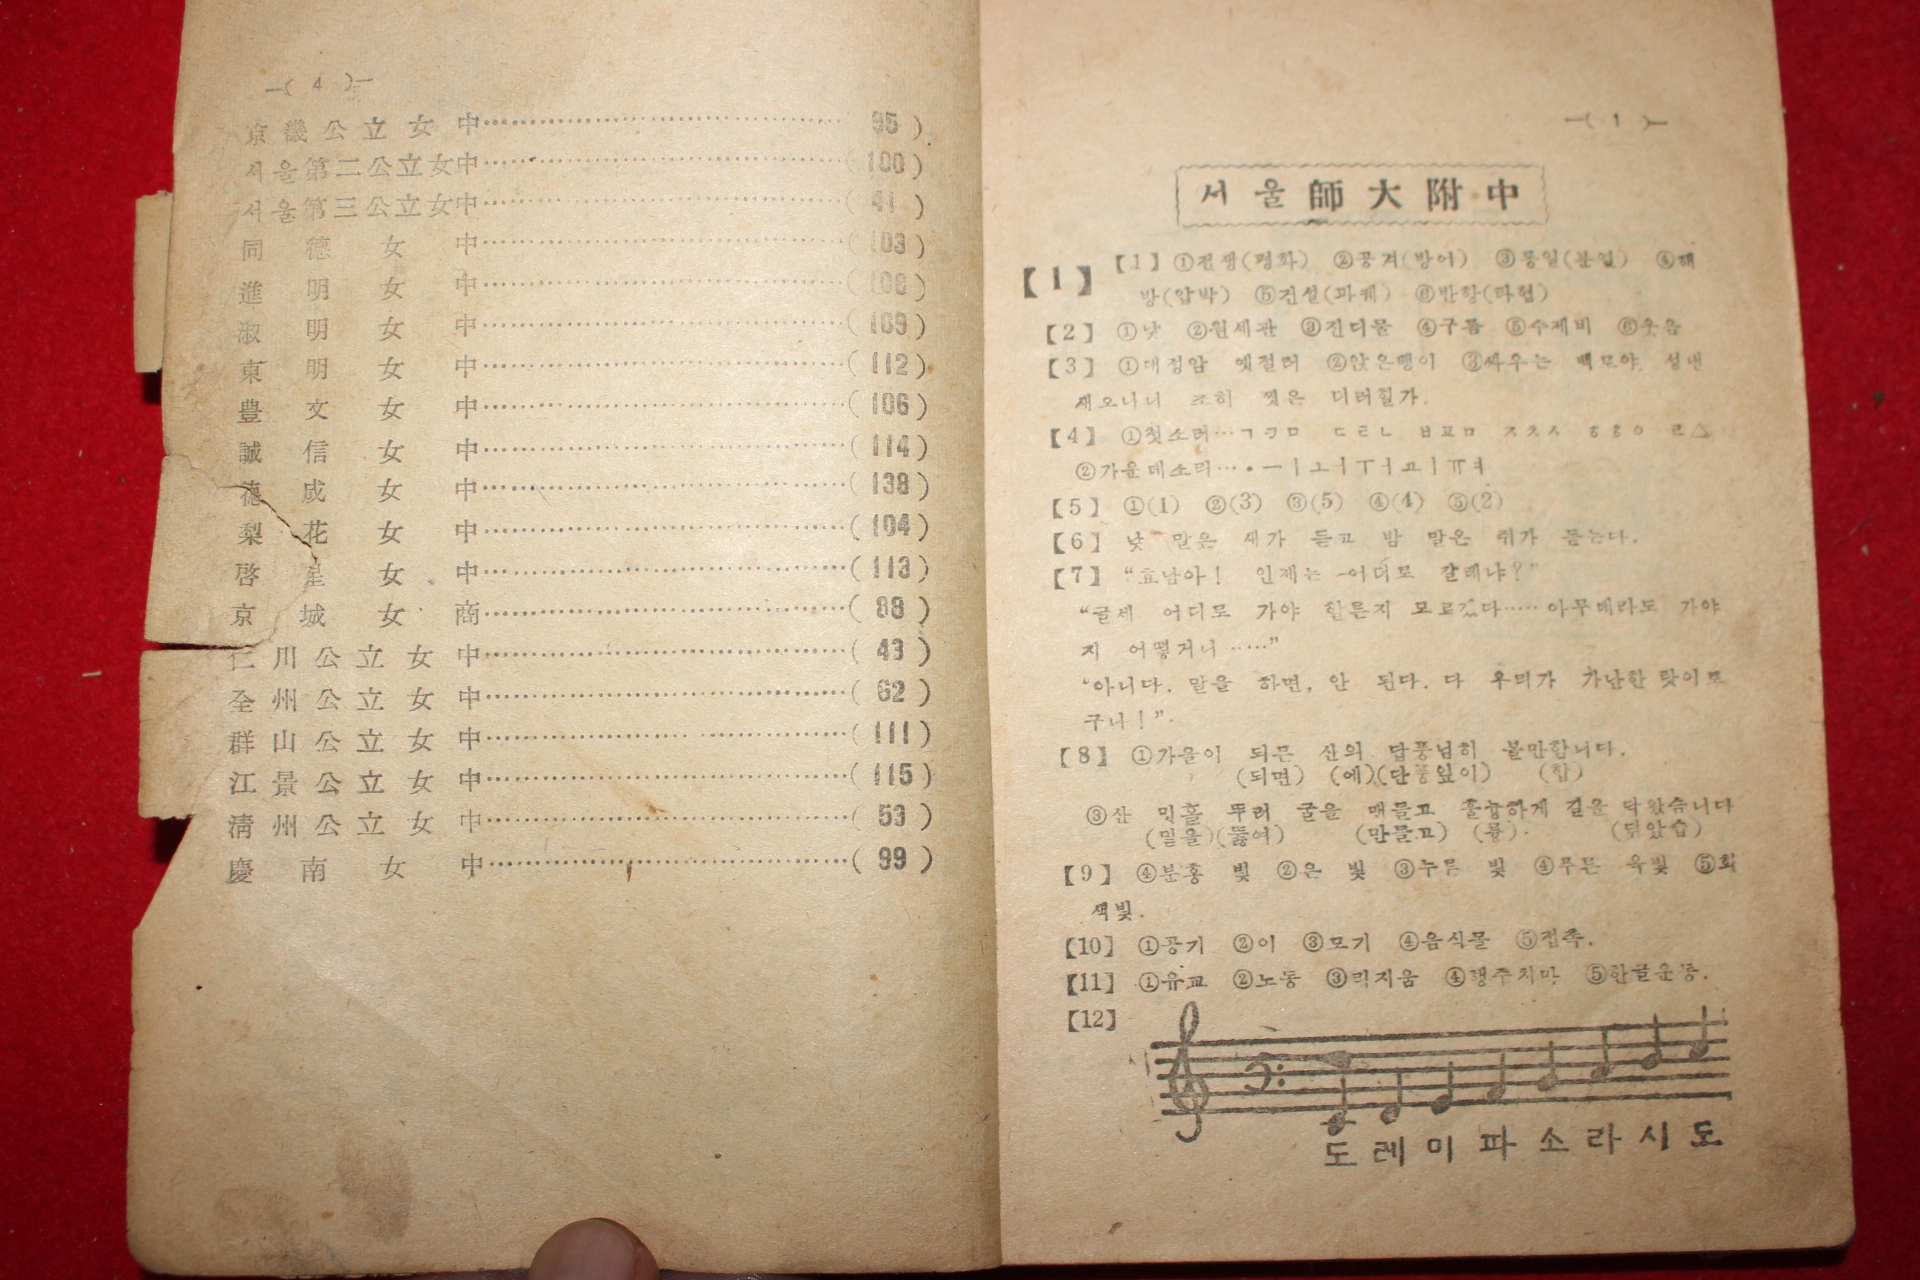 —( 4 )—
京畿公立女中……………( 95 )
서울第二公立女中……………( 100 )
서울第三公立女中……………( 41 )
同德女中……………( 103 )
進明女中……………( 108 )
淑明女中……………( 109 )
東明女中……………( 112 )
豊文女中……………( 106 )
誠信女中……………( 114 )
德成女中……………( 138 )
梨花女中……………( 104 )
啓星女中……………( 113 )
京城女商……………( 88 )
仁川公立女中……………( 43 )
全州公立女中……………( 62 )
群山公立女中……………( 111 )
江景公立女中……………( 115 )
淸州公立女中……………( 53 )
慶南女中……………( 99 )
—( 1 )—
서울師大附中
【1】【1】①전쟁(평화) ②공격(방어) ③통일(분열) ④해
방(압박) ⑤건설(파괴) ⑥반항(타협)
【2】 ①낯 ②원세관 ③진디물 ④구름 ⑤수제비 ⑥웃음
【3】 ①대정암 옛절터 ②앉은뱅이 ③싸우는 백모야 성내
새오나니 조히 씻은 더러힐가.
【4】 ①첫소리…ㄱㅋㅁ ㄷㄹㄴ ㅂㅍㅁ ㅈㅊㅅ ㅎㆆㅇ ㄹㅿ
②가운데소리…•ㅡㅣㅗㅏㅜㅓㅛㅑㅠㅕ
【5】 ①(1) ②(3) ③(5) ④(4) ⑤(2)
【6】 낮 말은 새가 듣고 밤 말은 쥐가 듣는다.
【7】 “효남아! 인제는 어디로 갈테냐?”
“글세 어디로 가야 할른지 모르겠다…… 아무데라도 가야
지 어떻거니……”
“아니다. 말을 하면, 안 된다. 다 우리가 가난한 탓이로
구나!”
【8】 ①가을이 되믄 산의 답풍닙히 볼만합니다.
(되면) (에)(단풍잎이) (합)
③산 밋홀 뚜러 굴을 맨들고 훌늉하게 길을 닥았습니다
(밑을)(뚫여) (만들고) (륭) (닦았습)
【9】 ④분홍 빛 ②은 빛 ③누른 빛 ④푸른 옥빛 ⑤회
색빛.
【10】 ①공기 ②이 ③모기 ④음식물 ⑤접촉.
【11】 ①유교 ②노동 ③믹지움 ④행주치마 ⑤한글운동.
【12】
도 레 미 파 소 라 시 도